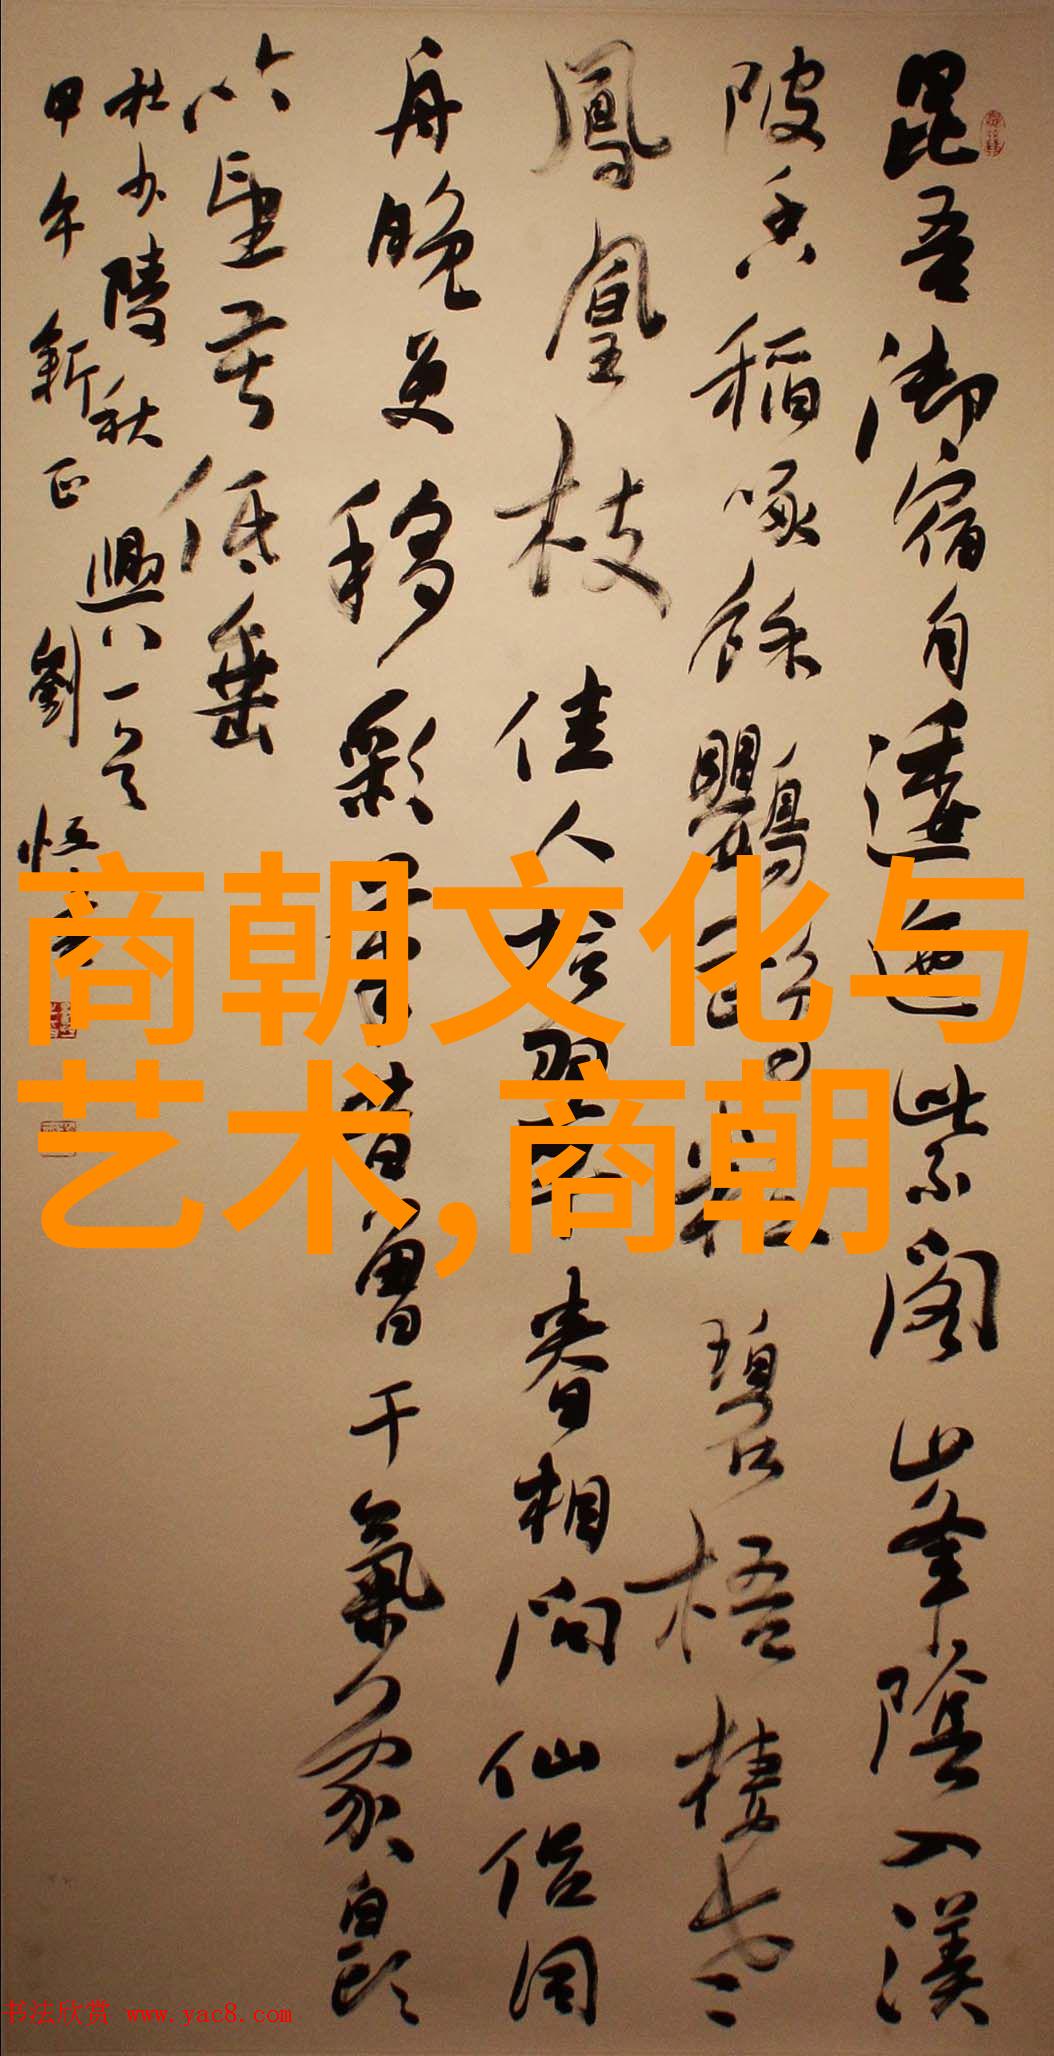 昆吾御宿自逶迤紫閣峯陰入渼
陂香稻啄餘鸚鵡粒碧梧棲老
鳳凰枝佳人拾翠春相問仙侣同
舟晚更移彩筆昔曾干氣象白頭
吟望苦低垂
杜少陵秋興八一首
甲午新正劉恒
商朝文化与
艺术,商朝
书法欣赏 www.yac8.com